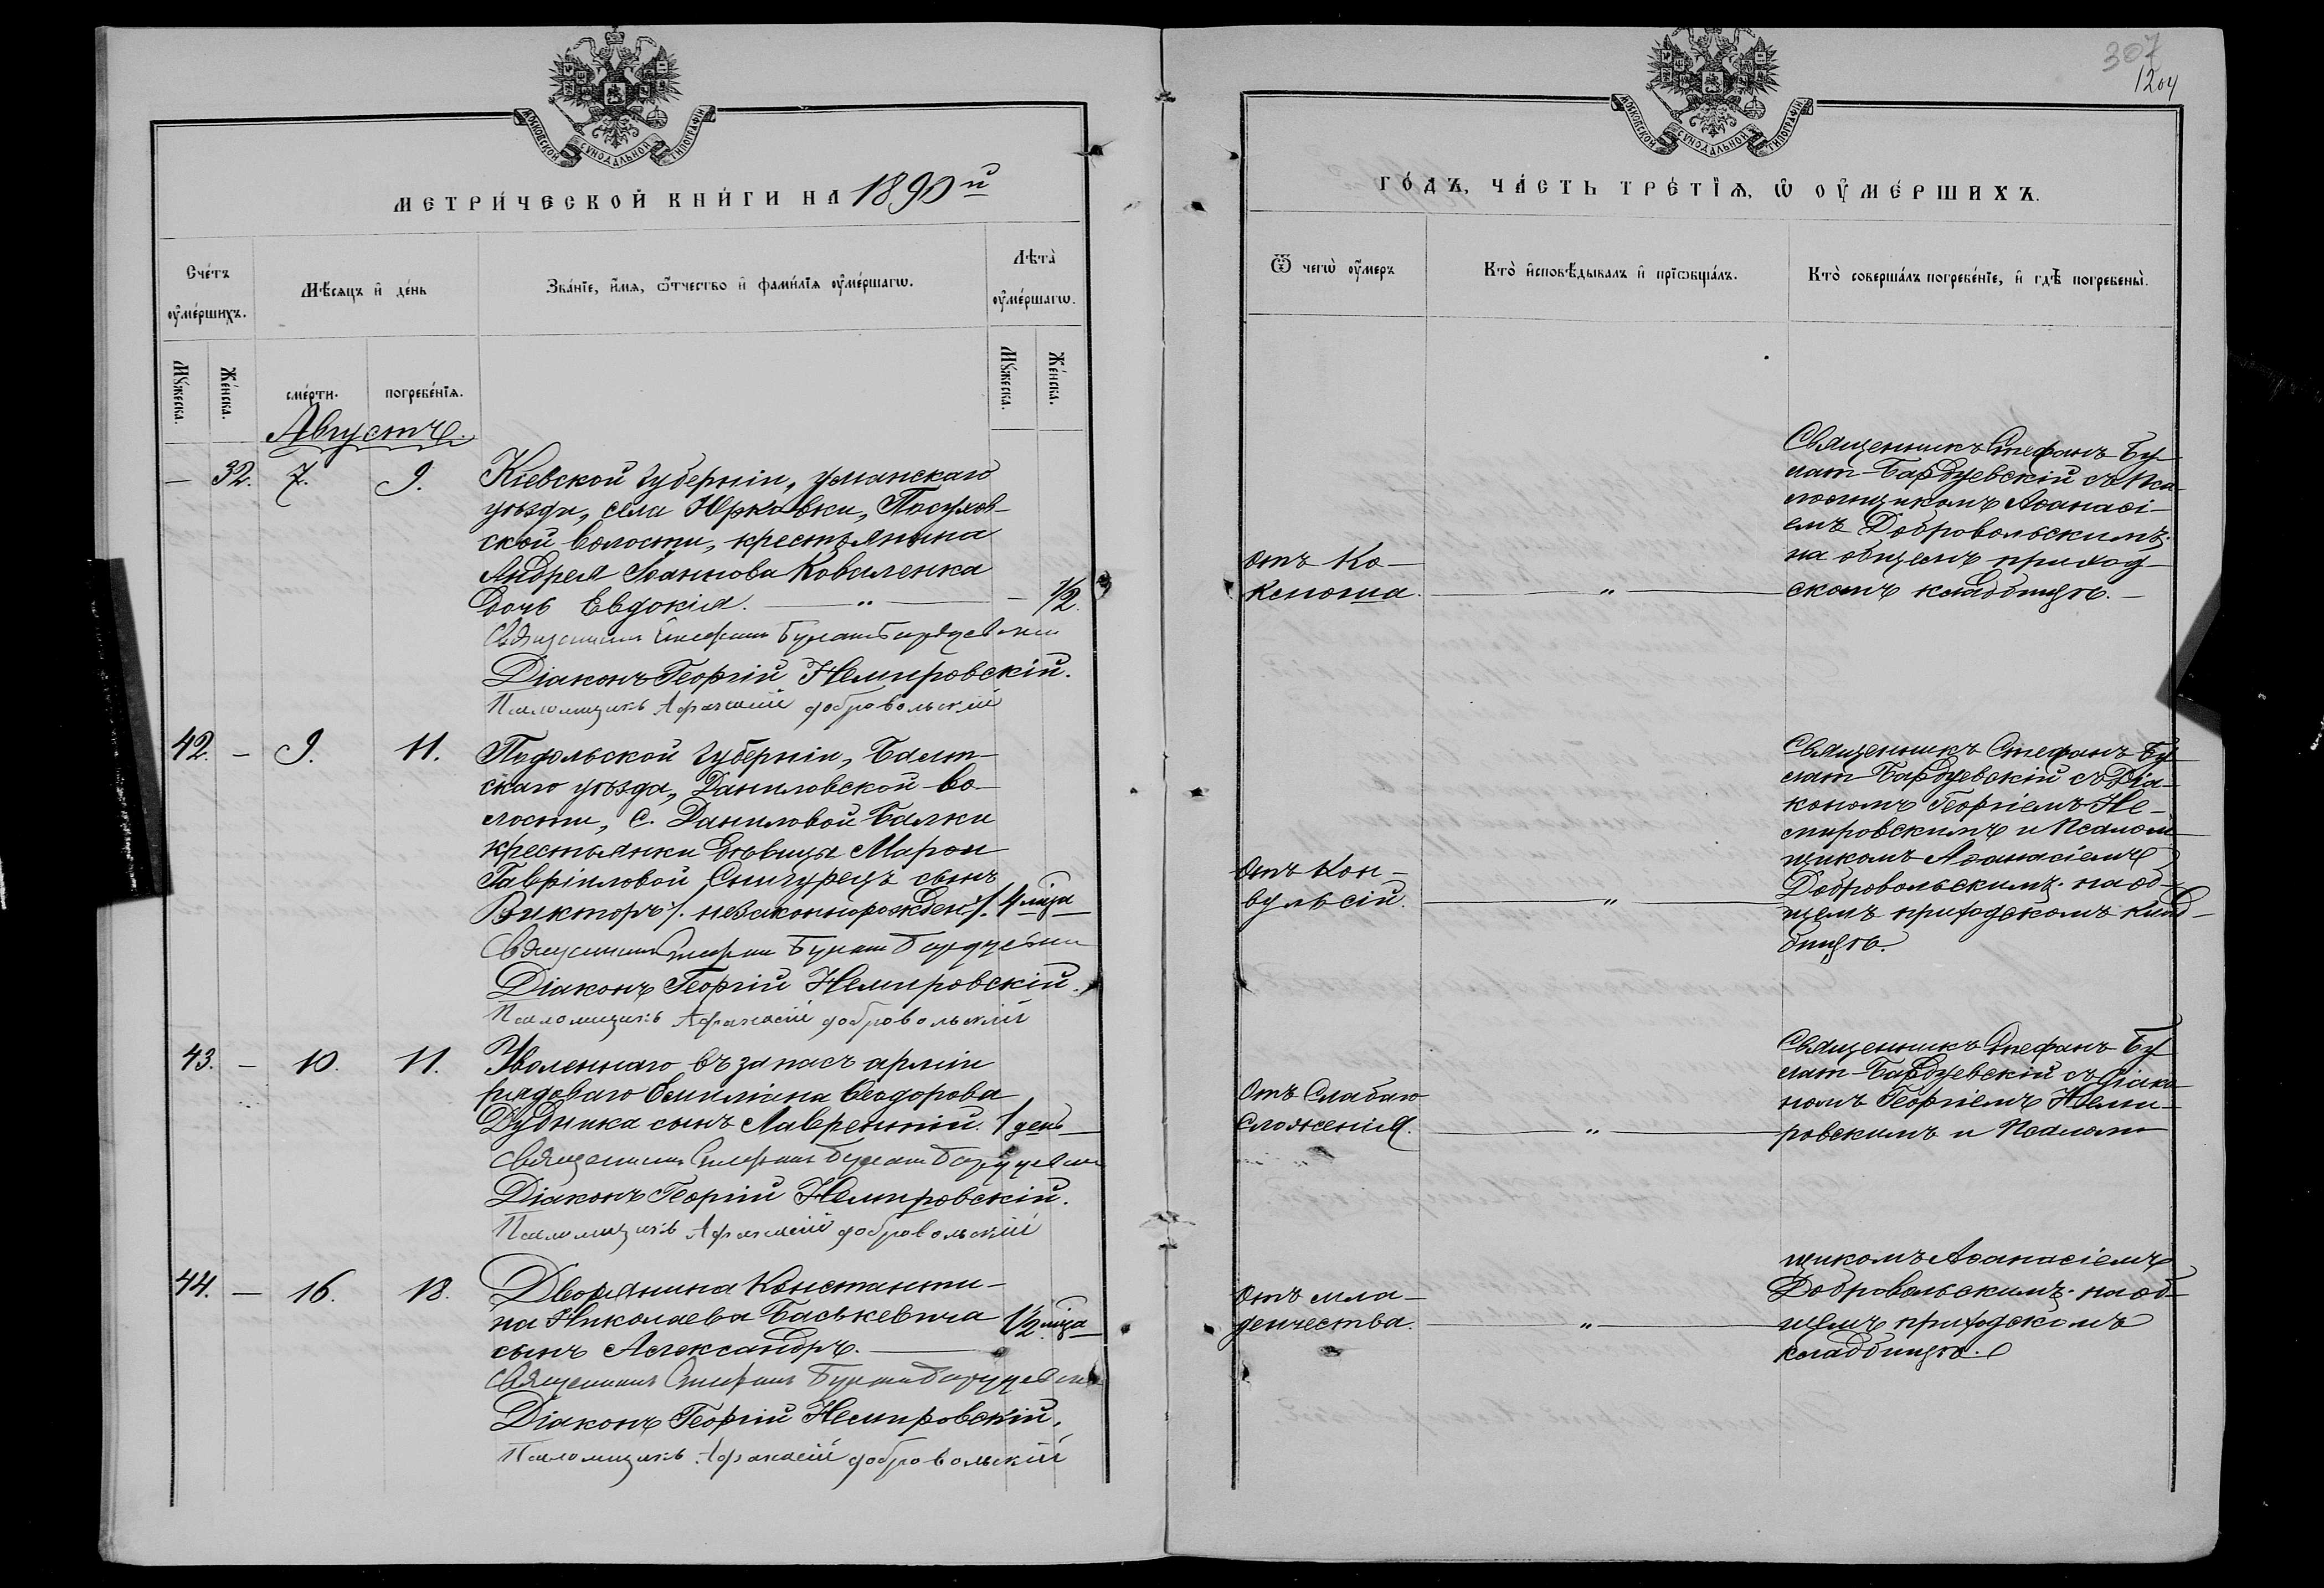 МОСКОВСКОЙ СѴНОДАЛЬНОЙ ТИПОГРАФІИ
МЕТРИ́ЧЕСКОЙ КНИ́ГИ НА 1890й
Сче́тъ ᲂу҆ме́ршихъ.
Мѣ́сяцъ и҆ де́нь
Зва́нїе, и҆́мѧ, ѻ҆́тчество и҆ фами́лїѧ ᲂу҆ме́ршагѡ.
Лѣта̀ ᲂу҆ме́ршагѡ.
Мꙋ́жеска.
Же́нска.
сме́рти.
погребе́нїѧ.
Мꙋ́жеска.
Же́нска.
Августъ.
— 32. 7. 9. Кіевской губерніи, уманскаго
уѣзда, села Юрковки, Посухов-
ской волости, крестьянина
Андрея Іоаннова Коваленка
дочь Евдокія. — " — — 1/2.
Священникъ Стефанъ Булатъ Бардуевскій
Діаконъ Георгій Немировскій.
Псаломщикъ Афанасій Добровольскій
42. — 9. 11. Подольской губерніи, Балт-
скаго уѣзда, Даниловской во-
лости, с. Даниловой Балки
крестьянки дѣвицы Марѳи
Гавріиловой Снигурецъ сынъ
Викторъ /. незаконнорожден /. 4 мѣца —
Священникъ Стефанъ Булатъ Бардуевскій
Діаконъ Георгій Немировскій.
Псаломщикъ Афанасій Добровольскій
43. — 10. 11. Уволеннаго въ запасъ арміи
рядоваго Емиліана Ѳеодорова
Дудника сынъ Лаврентій. 1 день —
Священникъ Стефанъ Булатъ Бардуевскій
Діаконъ Георгій Немировскій.
Псаломщикъ Афанасій Добровольскій
44. — 16. 18. Дворянина Константи-
на Николаева Баськевича 1 1/2 мѣца —
сынъ Александръ. —
Священникъ Стефанъ Булатъ Бардуевскій
Діаконъ Георгій Немировскій.
Псаломщикъ Афанасій Добровольскій
307
1204
МОСКОВСКОЙ СѴНОДАЛЬНОЙ ТИПОГРАФІИ
ГО́ДЪ, ЧА́СТЬ ТРЕ́ТЇѦ, Ѡ҆ ОУ҆МЕ́РШИХЪ.
Ѿ чегѡ̀ ᲂу҆́меръ
Кто̀ и҆сповѣ́дывалъ и҆ прїѡбща́лъ.
Кто̀ соверша́лъ погребе́нїе, и҆ гдѣ̀ погребены̀.
Священникъ Стефанъ Бу-
лат-Бардуевскій съ Пса-
ломщикомъ Аѳанасі-
емъ Добровольскимъ
на общемъ приход-
скомъ кладбищѣ. —
отъ Ко-
клюша. — " —
Священникъ Стефанъ Бу-
лат-Бардуевскій съ Діа-
кономъ Георгіемъ Не-
мировскимъ и Псалом-
щикомъ Аѳанасіемъ
Добровольскимъ. на об-
щемъ приходскомъ клад-
бищѣ.
Отъ Кон-
вульсій. — " —
Священникъ Стефанъ Бу-
лат-Бардуевскій съ Діако-
номъ Георгіемъ Неми-
ровскимъ и Псалом-
Отъ Слабаго
сложенія. — " —
щикомъ Аѳанасіемъ
Добровольскимъ. на об-
щемъ приходскомъ
кладбищѣ.
Отъ мла-
денчества. — " —